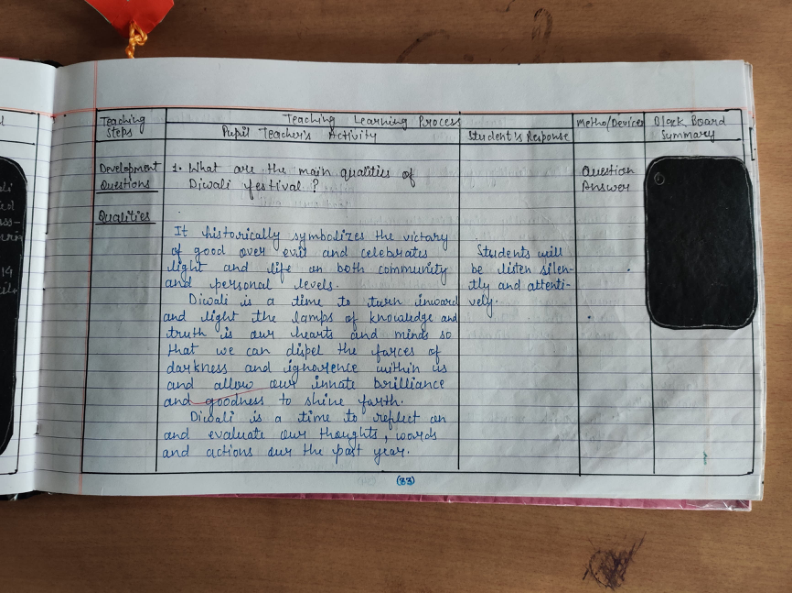 Teaching Learning Process
Teaching Steps
Pupil Teacher's Activity
Student's Response
Metho/Devices
Black Board Summary
Development Questions
1. What are the main qualities of
Diwali festival ?
Question
Answer
Qualities
It historically symbolizes the victory
of good over evil and celebrates
light and life on both community
and personal levels.
Diwali is a time to turn inward
and light the lamps of knowledge and
truth is our hearts and minds so
that we can dispel the forces of
darkness and ignorence within us
and allow our innate brilliance
and goodness to shine forth.
Diwali is a time to reflect on
and evaluate our thoughts, words
and actions our the past year.
Students will
be listen silen-
tly and attenti-
vely.
(33)